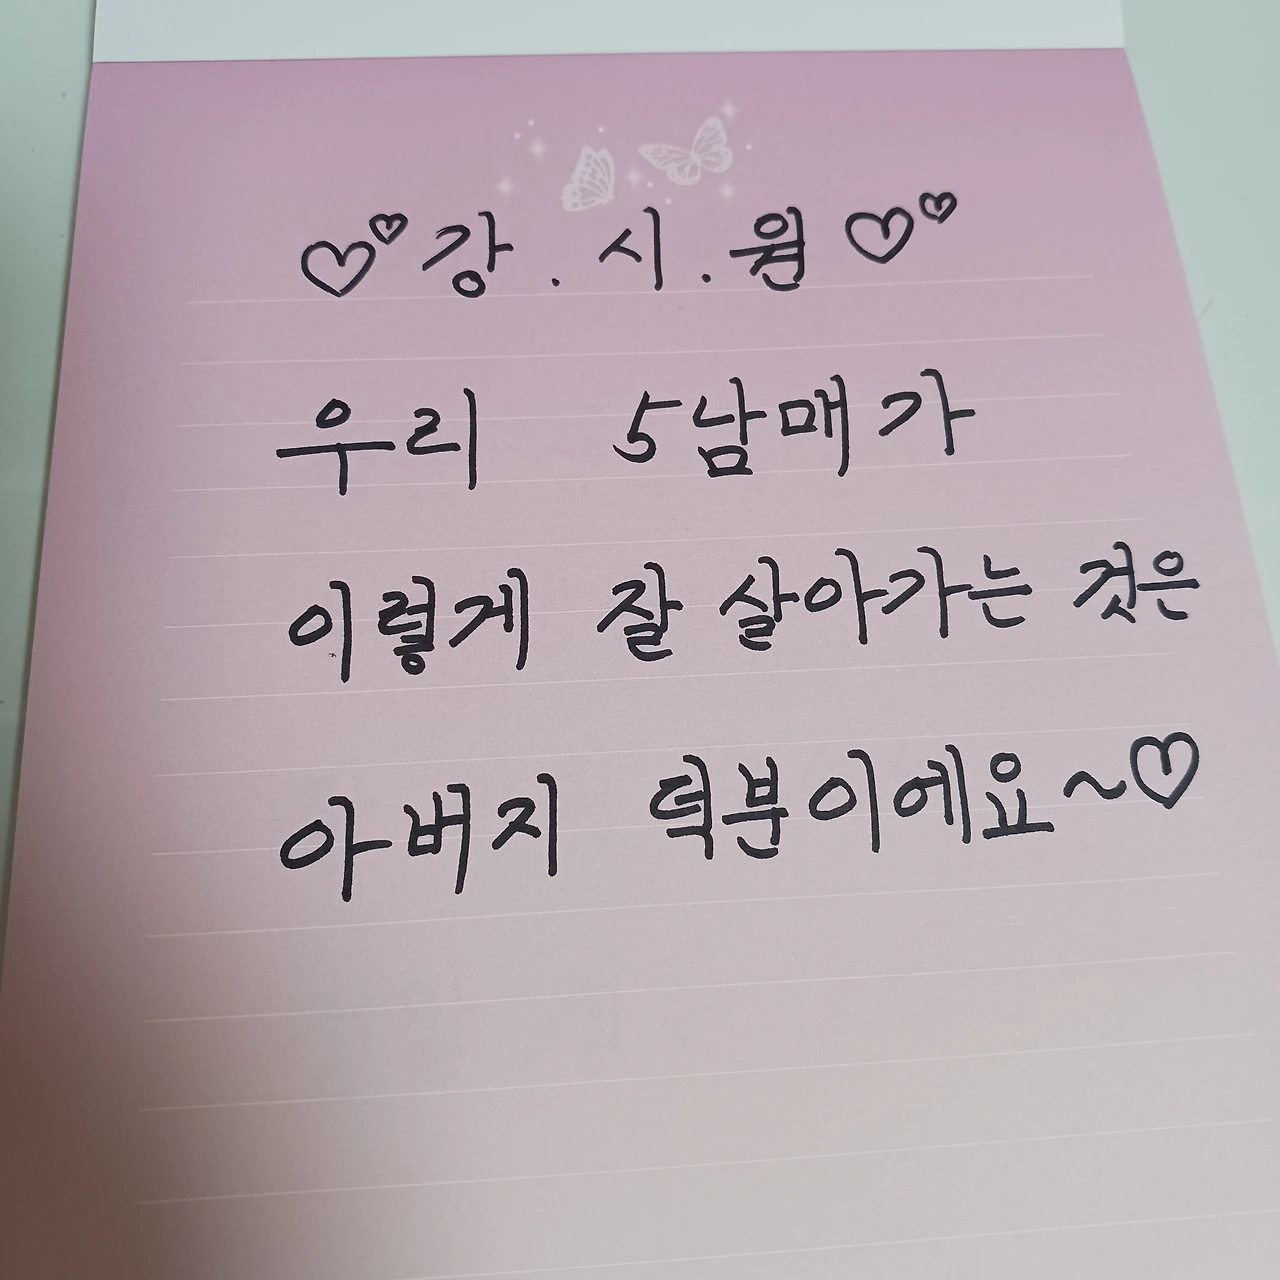 ♡♡강.시.원♡♡
우리 5남매가
이렇게 잘 살아가는 것은
아버지 덕분이에요~♡